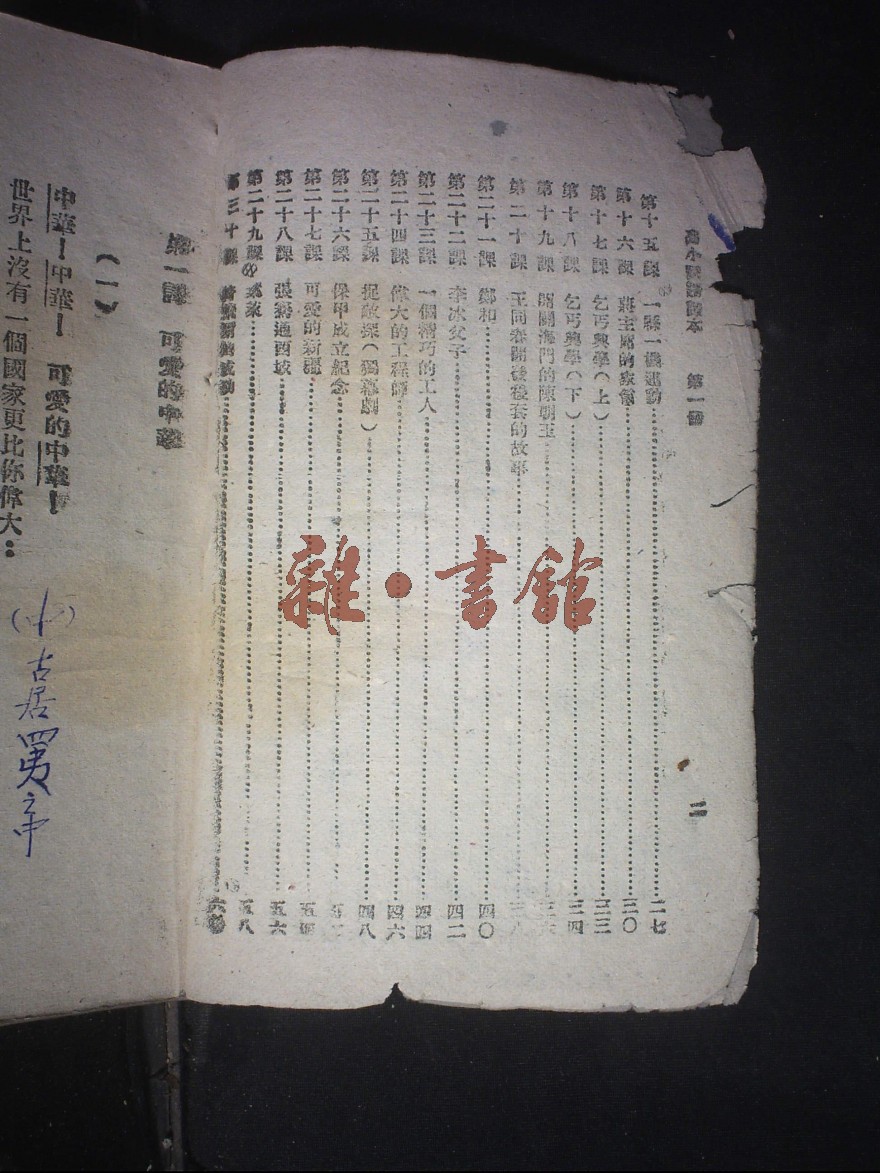 高小國語讀本 第一冊
二
第十五課 一縣一機運動 二七
第十六課 蔣主席的家 三〇
第十七課 乞丐興學(上) 三三
第十八課 乞丐興學(下) 三四
第十九課 開闢海門的陳朝玉 三六
第二十課 王同春開後套的故事 三八
第二十一課 鄭和 四〇
第二十二課 李冰父子 四二
第二十三課 一個精巧的工人 四四
第二十四課 偉大的工程師 四六
第二十五課 捉敵探(獨幕劇) 四八
第二十六課 保甲成立紀念
第二十七課 可愛的新疆 五四
第二十八課 張騫通西域 五六
第二十九課 五八
第三十課 六
雜·書館
第一課 可愛的中華
(一)
中華!中華! 可愛的中華!
世界上沒有一個國家更比你偉大:
古居四夷之中